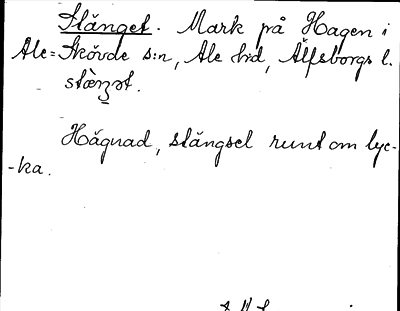 Stänget. Mark på Hagen i
Ale=Skövde s:n, Ale hd, Älfsborgs l.
Hägnad, stängsel runt om lyc-
-ka.